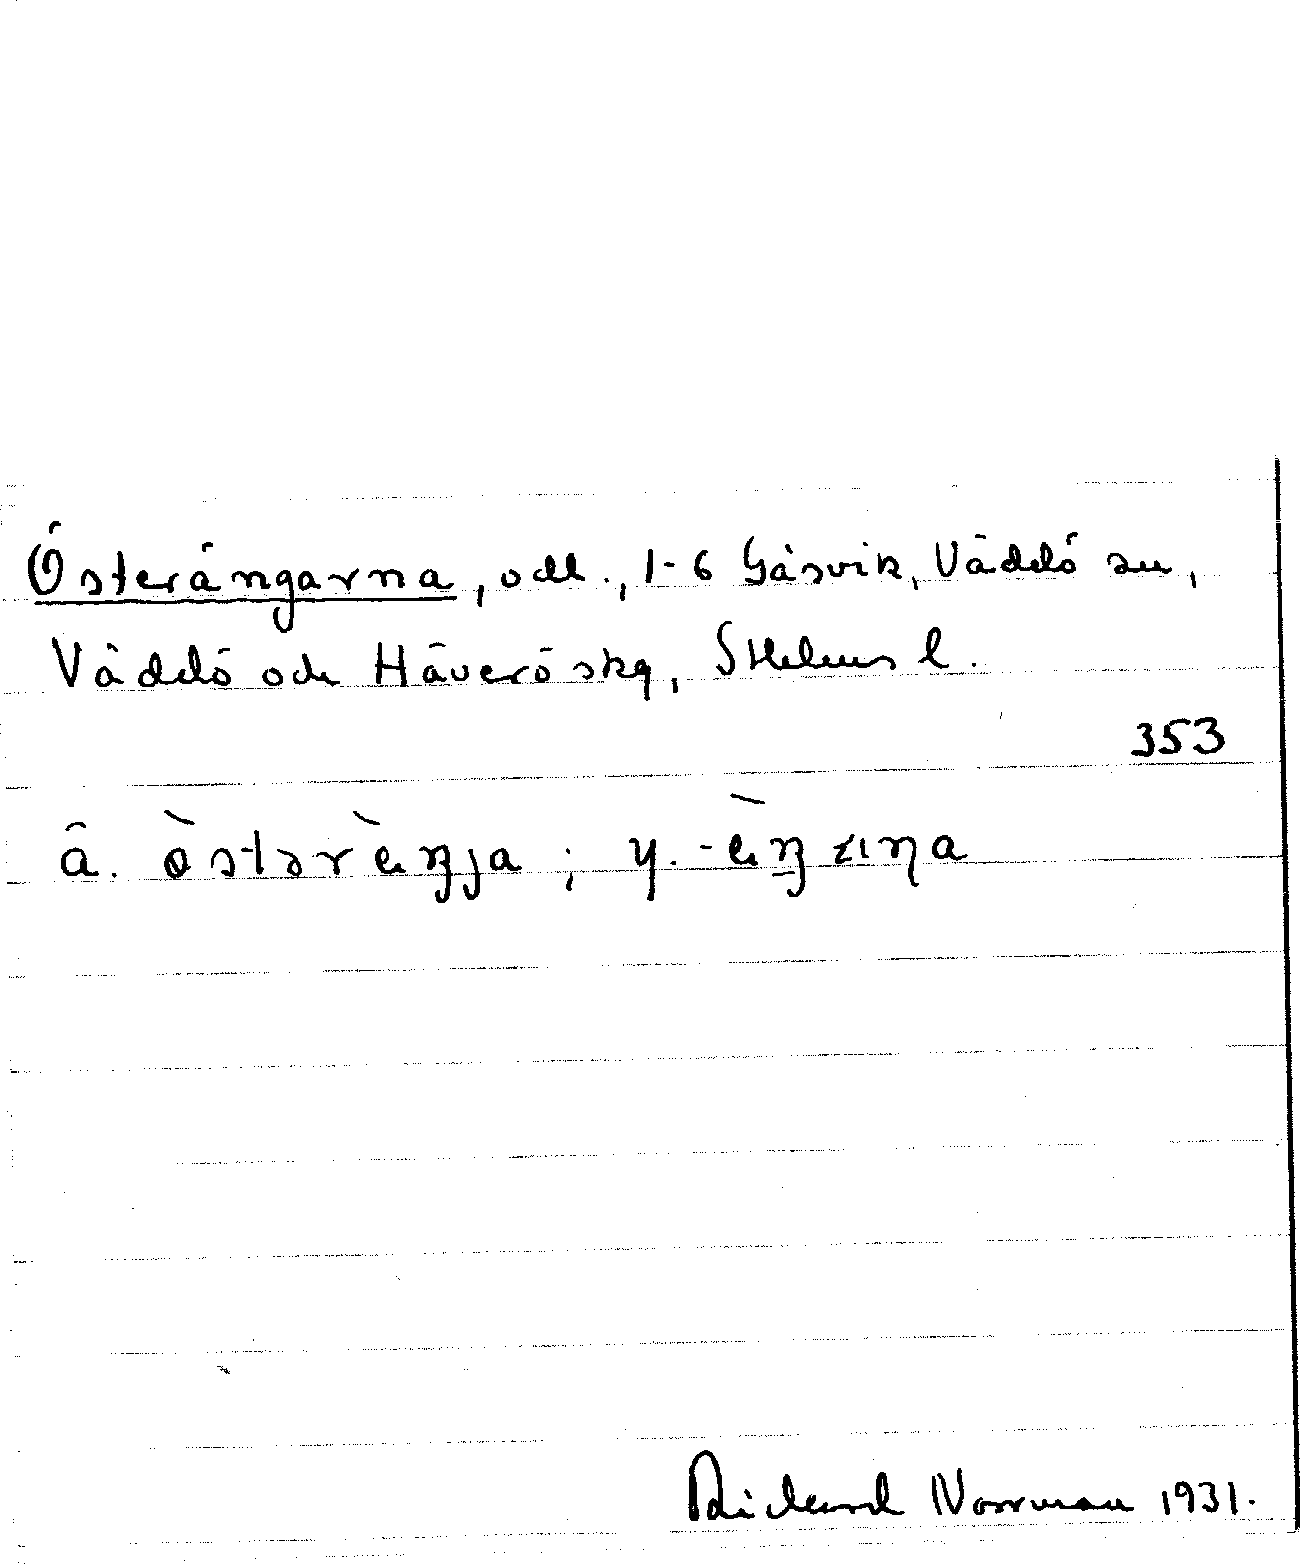 Österängarna, odl., 1-6 Gåsvik, Väddö sn,
Väddö och Häverö skg, Sthlms l.
353
ä. òstərèŋja; y. -èŋaɳa
Rickard Norrman 1931.